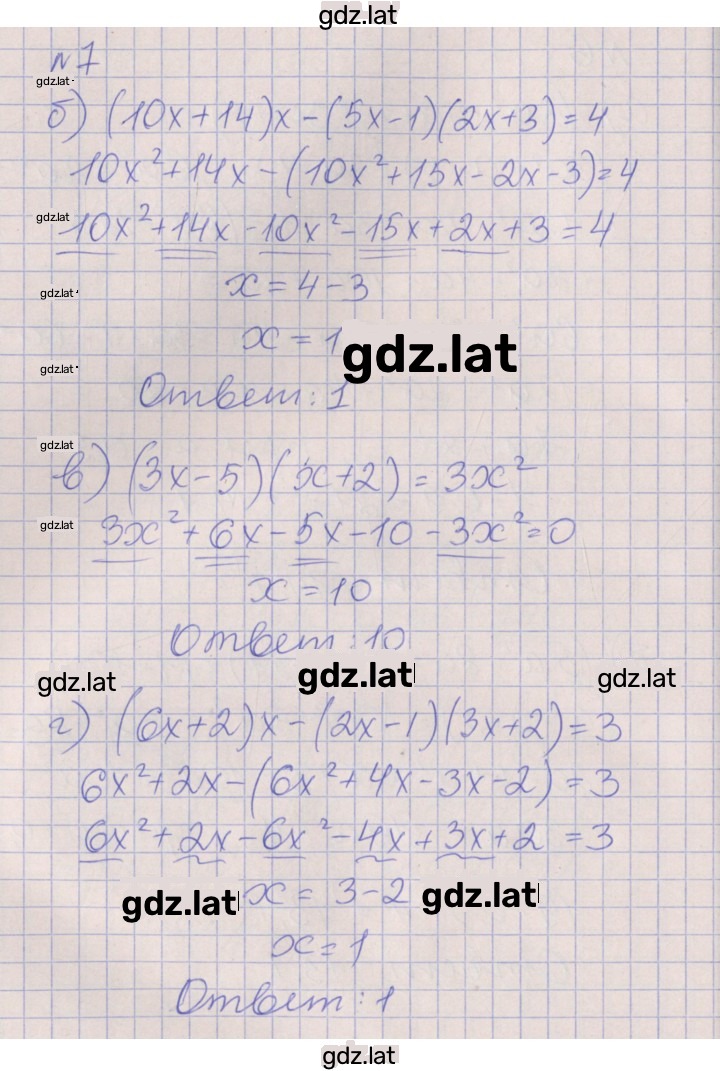 gdz.lat
№7
gdz.lat
б) (10x+14)x-(5x-1)(2x+3)=4
10x²+14x-(10x²+15x-2x-3)=4
gdz.lat
10x²+14x-10x²-15x+2x+3=4
gdz.lat
x=4-3
x=1
gdz.lat
gdz.lat
Ответ: 1
gdz.lat
в) (3x-5)(x+2)=3x²
gdz.lat
3x²+6x-5x-10-3x²=0
x=10
Ответ: 10
gdz.lat gdz.lat gdz.lat
г) (6x+2)x-(2x-1)(3x+2)=3
6x²+2x-(6x²+4x-3x-2)=3
6x²+2x-6x²-4x+3x+2=3
gdz.lat x=3-2 gdz.lat
x=1
Ответ: 1
gdz.lat